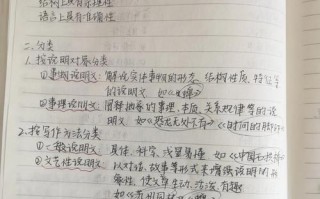 结构上具有条理性
语言上具有准确性
二、分类
1. 按说明对象分类
①事物说明文：解说实体事物的形态、结构性质、特征等
的说明文，如《
②事理说明文：阐释抽象的事理，本质、关系规律等的说
明文，如《恐龙无处不有》《时间的脚印》
2. 按写作方法分类
①一般说明文：具体、科学、浅显易懂，如《中国石拱桥》
②文艺性说明文：以对话、故事等形式来增强说明的形
象性，使文章生动、活泼、有趣
如《